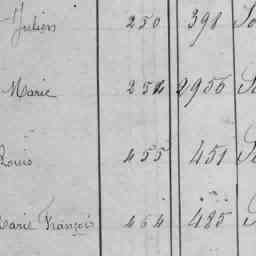 Julien 250 398 So
Marie 254 2956 So
Louis 455 451 So
Marie François 464 485 S